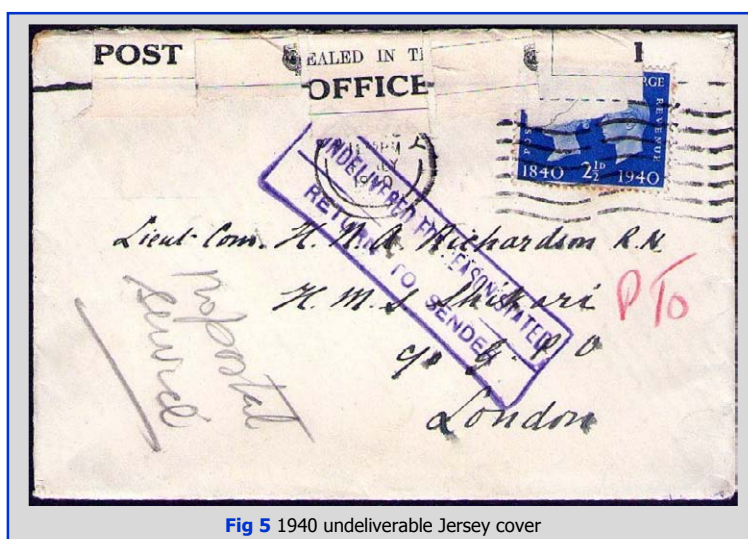 POST EALED IN T
OFFICE
RGE
REVENUE
1840 2½D 1940
PM
19
UNDELIVERED FOR REASON STATED
RETURN TO SENDER
Lieut. Com. H. N. A. Richardson R.N
H.M.S Shikari
c/o G.P.O
London
P TO
no postal
service
Fig 5 1940 undeliverable Jersey cover